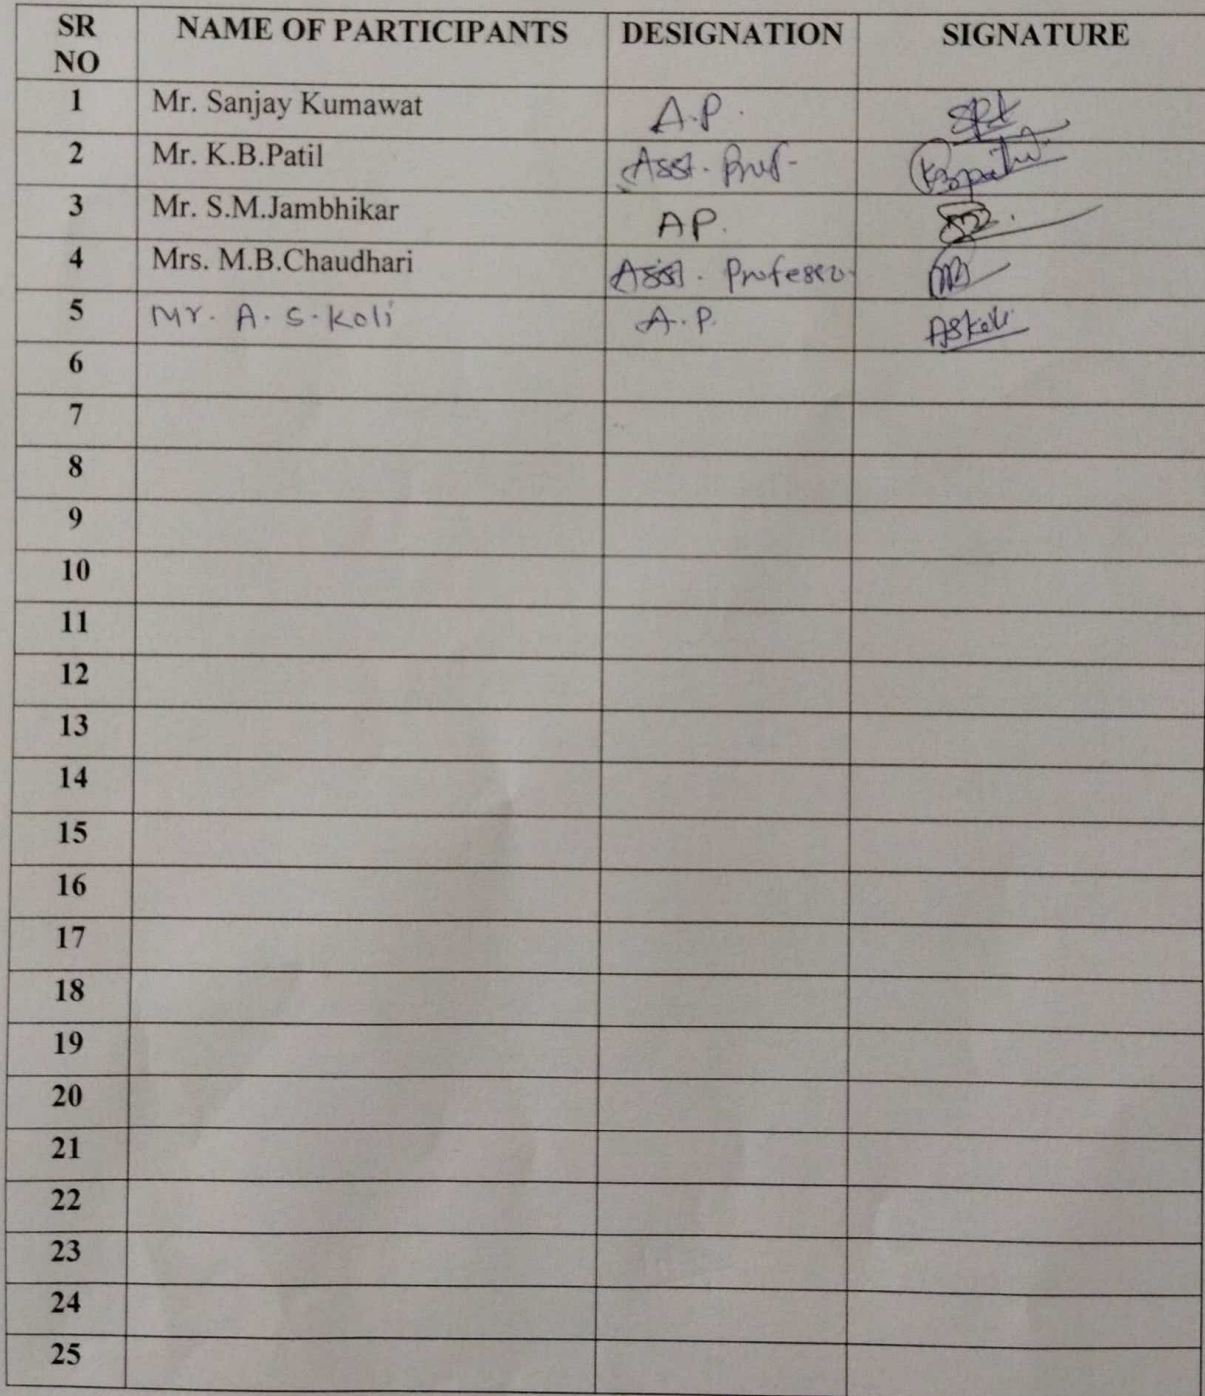 SR NO NAME OF PARTICIPANTS DESIGNATION SIGNATURE
1 Mr. Sanjay Kumawat A.P.
2 Mr. K.B.Patil Asst. Prof. KBpatil
3 Mr. S.M.Jambhikar AP.
4 Mrs. M.B.Chaudhari Asst. Professor
5 Mr. A. S. Koli A.P. ASKoli
6
7
8
9
10
11
12
13
14
15
16
17
18
19
20
21
22
23
24
25